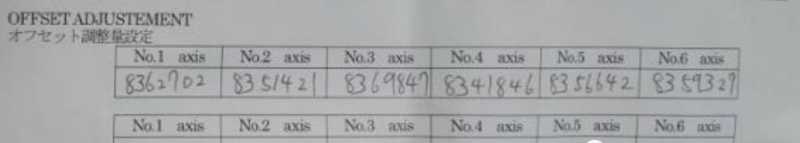 OFFSET ADJUSTEMENT
オフセット調整量設定
No.1 axis No.2 axis No.3 axis No.4 axis No.5 axis No.6 axis
8362702 8351421 8369847 8341846 8356642 8359327
No.1 axis No.2 axis No.3 axis No.4 axis No.5 axis No.6 axis